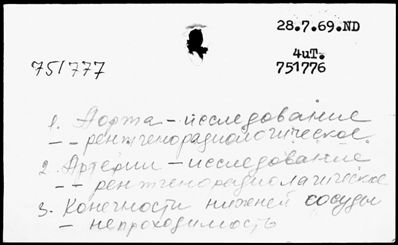 28.7.69.ND
4чт.
751777
751776
1. Аорта – исследование
– – рентгенорадиологическое.
2. Артерии – исследование
– – рентгенорадиологическое
3. Конечности нижней сосуды
– непроходимость